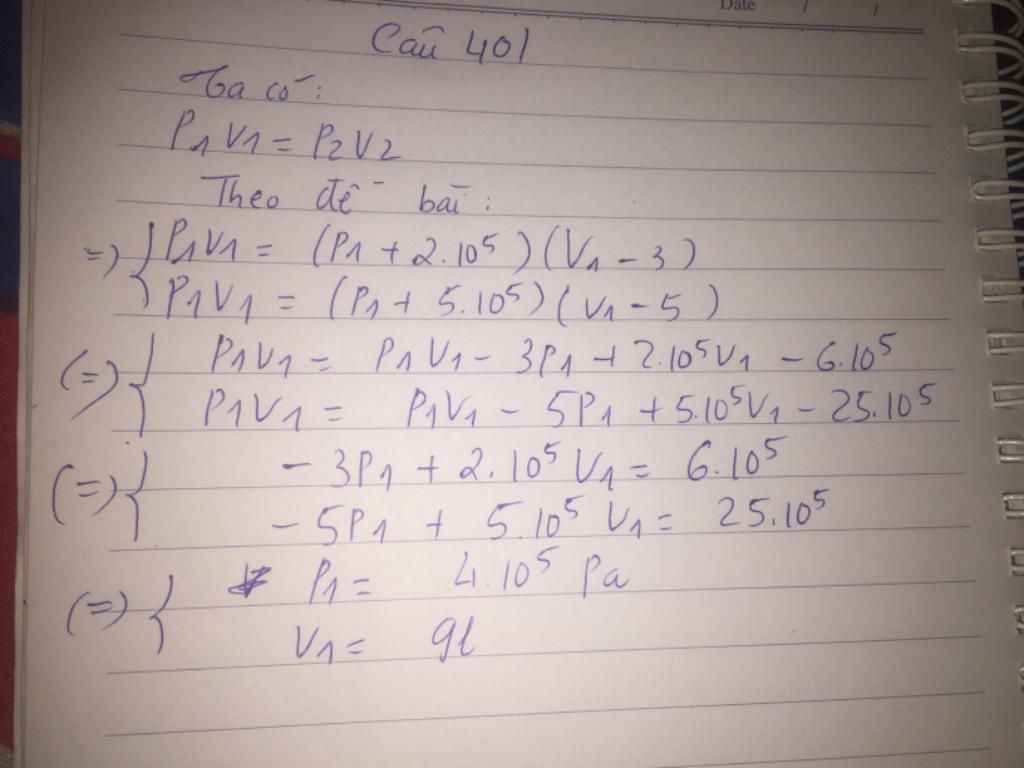 Date / /
Câu 401
Ta có:
P1V1 = P2V2
Theo đề bài:
=> { P1V1 = (P1 + 2.10⁵)(V1 - 3)
P1V1 = (P1 + 5.10⁵)(V1 - 5)
(=) { P1V1 = P1V1 - 3P1 + 2.10⁵V1 - 6.10⁵
P1V1 = P1V1 - 5P1 + 5.10⁵V1 - 25.10⁵
(=) { - 3P1 + 2.10⁵ V1 = 6.10⁵
- 5P1 + 5.10⁵ V1 = 25.10⁵
(=) { P1 = 4.10⁵ Pa
V1 = 9l